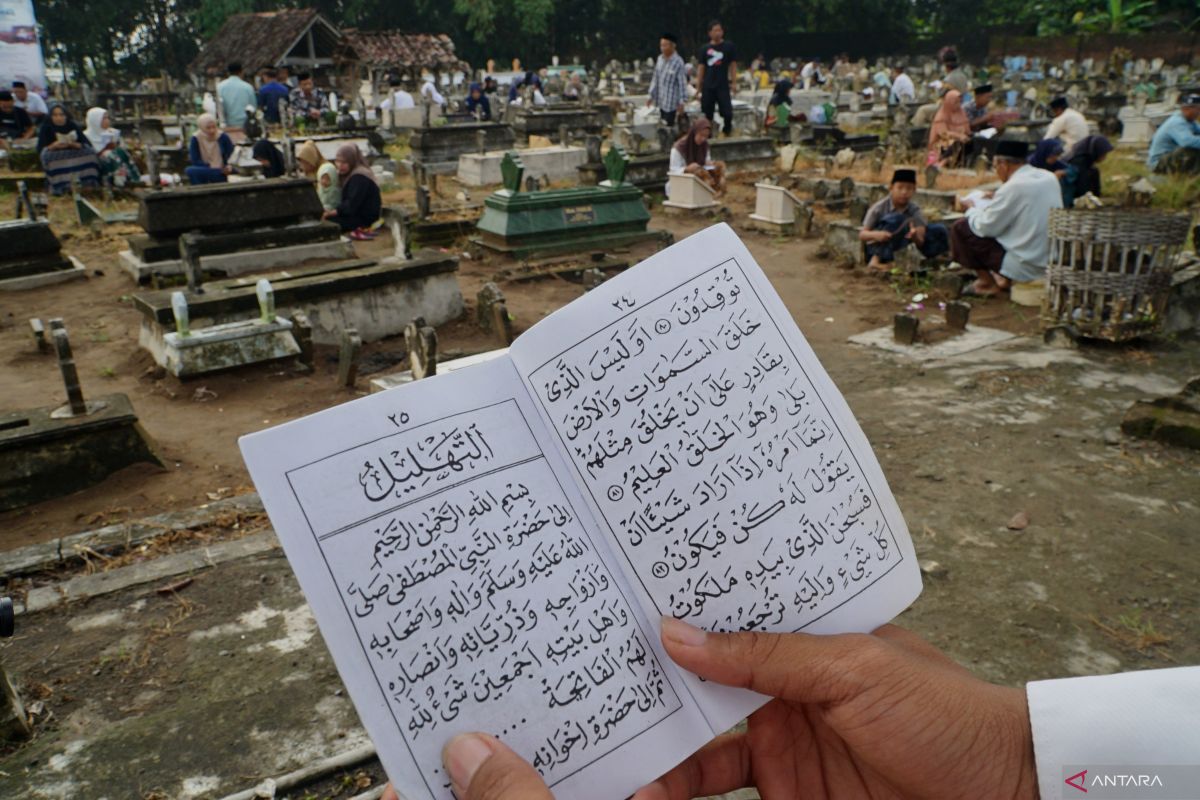 ٢٤
تُوْقِدُوْنَ ۝٨٠ اَوَلَيْسَ الَّذِيْ
خَلَقَ السَّمٰوَاتِ وَالْاَرْضَ
بِقَادِرٍ عَلٰى اَنْ يَخْلُقَ مِثْلَهُمْ
بَلٰى وَهُوَ الْخَلّٰقُ الْعَلِيْمُ ۝٨١
اِنَّمَا اَمْرُهٗ اِذَا اَرَادَ شَيْئًا اَنْ
يَقُوْلَ لَهٗ كُنْ فَيَكُوْنُ ۝٨٢
فَسُبْحٰنَ الَّذِيْ بِيَدِهٖ مَلَكُوْتُ
كُلِّ شَيْءٍ وَاِلَيْهِ تُرْجَعُوْنَ
٢٥
اَلتَّهْلِيْلُ
بِسْمِ اللهِ الرَّحْمٰنِ الرَّحِيْمِ
اِلٰى حَضْرَةِ النَّبِيِّ الْمُصْطَفٰى صَلَّى
اللهُ عَلَيْهِ وَسَلَّمَ وَاٰلِهٖ وَاَصْحَابِهٖ
وَاَزْوَاجِهٖ وَذُرِّيَّاتِهٖ وَاَنْصَارِهٖ
وَاَهْلِ بَيْتِهٖ اَجْمَعِيْنَ شَيْءٌ لِلّٰهِ
لَهُمُ الْفَاتِحَةُ ....
ثُمَّ اِلٰى حَضْرَةِ اِخْوَانِهٖ
ANTARA